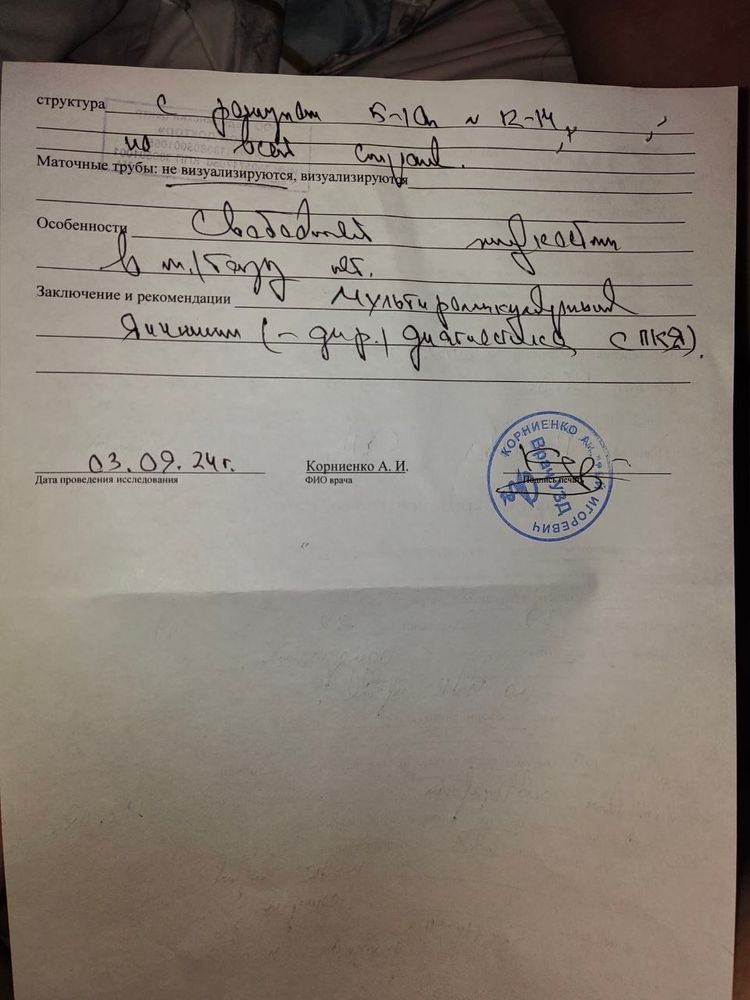 структура с фолликулами 5-10 N 12-14,
по всей строме.
Маточные трубы: не визуализируются, визуализируются
Особенности Свободной жидкости
в м/тазу нет.
Заключение и рекомендации Мультифолликулярные
яичники (- диф. диагностика с ПКЯ).
03.09.24г. Корниенко А. И.
Дата проведения исследования ФИО врача Подпись печать
КОРНИЕНКО ИГОРЕВИЧ
Врач УЗД